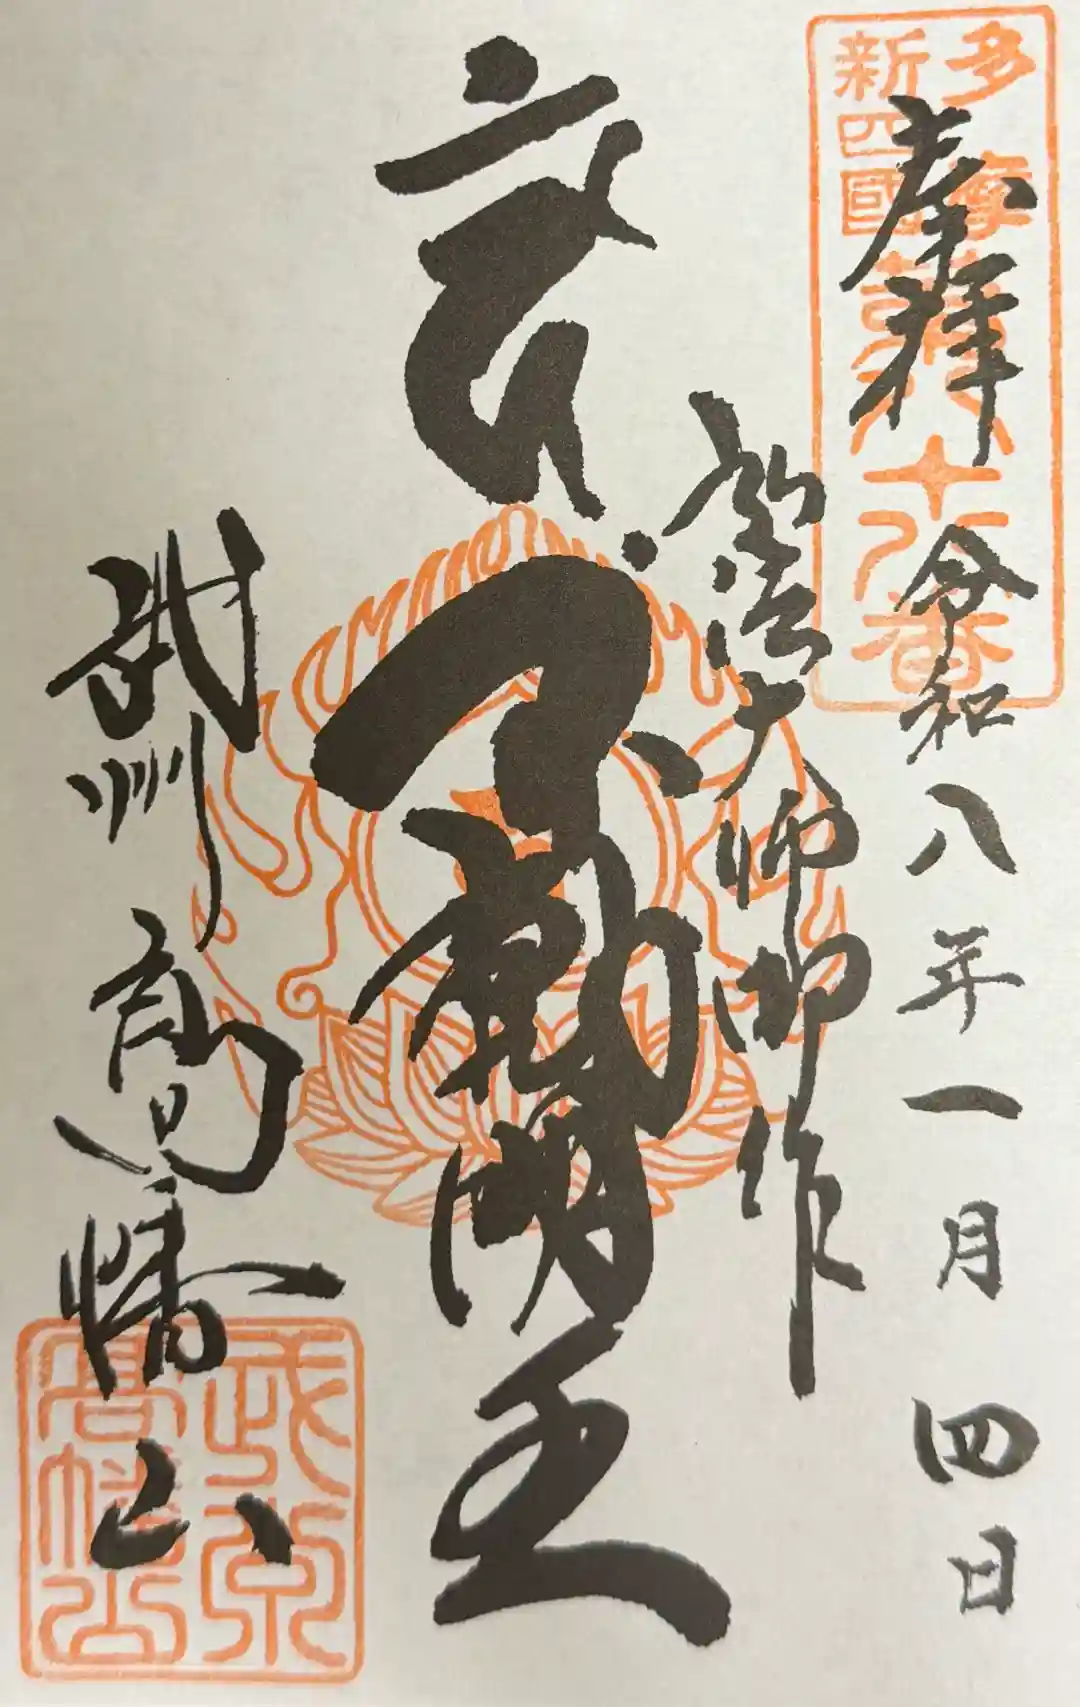 多摩
新四國
第八十八番
奉拝 令和八年一月四日
弘法大師御作
不動明王
武州 高幡山
高幡山